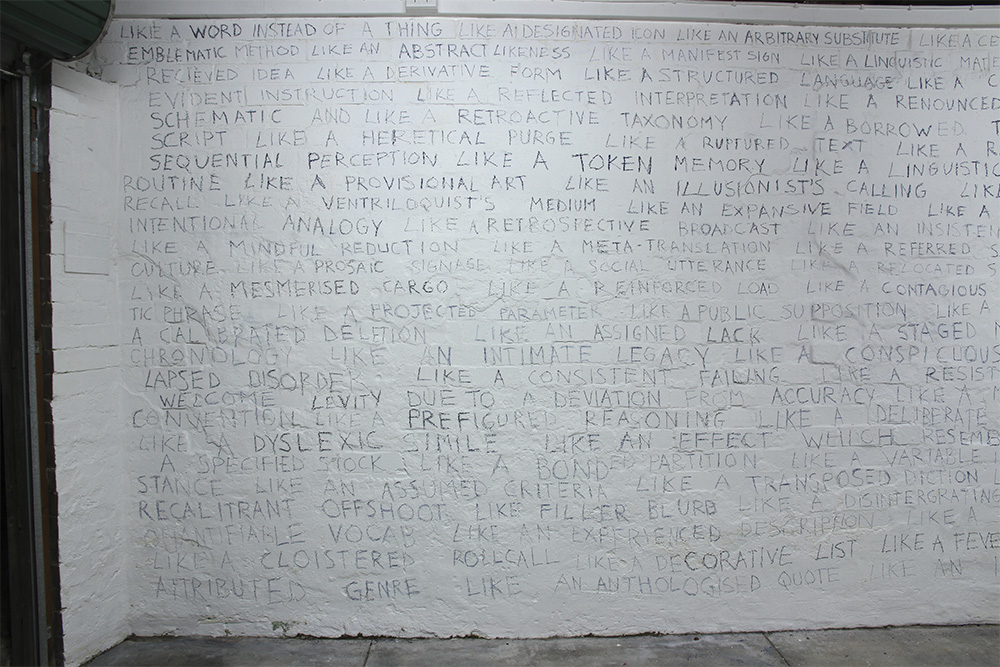 LIKE A WORD INSTEAD OF A THING LIKE A DESIGNATED ICON LIKE AN ARBITRARY SUBSTITUTE LIKE A CE
EMBLEMATIC METHOD LIKE AN ABSTRACT LIKENESS LIKE A MANIFEST SIGN LIKE A LINGUISTIC MATE
RECIEVED IDEA LIKE A DERIVATIVE FORM LIKE A STRUCTURED LANGUAGE LIKE A C
EVIDENT INSTRUCTION LIKE A REFLECTED INTERPRETATION LIKE A RENOUNCED
SCHEMATIC AND LIKE A RETROACTIVE TAXONOMY LIKE A BORROWED T
SCRIPT LIKE A HERETICAL PURGE LIKE A RUPTURED TEXT LIKE A R
SEQUENTIAL PERCEPTION LIKE A TOKEN MEMORY LIKE A LINGUISTIC
ROUTINE LIKE A PROVISIONAL ART LIKE AN ILLUSIONIST'S CALLING LIKE
RECALL LIKE A VENTRILOQUIST'S MEDIUM LIKE AN EXPANSIVE FIELD LIKE A
INTENTIONAL ANALOGY LIKE A RETROSPECTIVE BROADCAST LIKE AN INSISTEN
LIKE A MINDFUL REDUCTION LIKE A META-TRANSLATION LIKE A REFERRED S
CULTURE LIKE A PROSAIC SIGNAGE LIKE A SOCIAL UTTERANCE LIKE A RELOCATED S
LIKE A MESMERISED CARGO LIKE A REINFORCED LOAD LIKE A CONTAGIOUS
TIC PHRASE LIKE A PROJECTED PARAMETER LIKE A PUBLIC SUPPOSITION LIKE A
A CALIBRATED DELETION LIKE AN ASSIGNED LACK LIKE A STAGED
CHRONOLOGY LIKE AN INTIMATE LEGACY LIKE A CONSPICUOUS
LAPSED DISORDER LIKE A CONSISTENT FAILING LIKE A RESIST
WELCOME LEVITY DUE TO A DEVIATION FROM ACCURACY LIKE A
CONVENTION LIKE A PREFIGURED REASONING LIKE A DELIBERATE
LIKE A DYSLEXIC SIMILE LIKE AN EFFECT WHICH RESEME
A SPECIFIED STOCK LIKE A BONDED PARTITION LIKE A VARIABLE
STANCE LIKE AN ASSUMED CRITERIA LIKE A TRANSPOSED DICTION
RECALITRANT OFFSHOOT LIKE FILLER BLURB LIKE A DISINTERGRATING
QUANTIFIABLE VOCAB LIKE AN EXPERIENCED DESCRIPTION LIKE A
LIKE A CLOISTERED ROLLCALL LIKE A DECORATIVE LIST LIKE A FEVE
ATTRIBUTED GENRE LIKE AN ANTHOLOGISED QUOTE LIKE AN